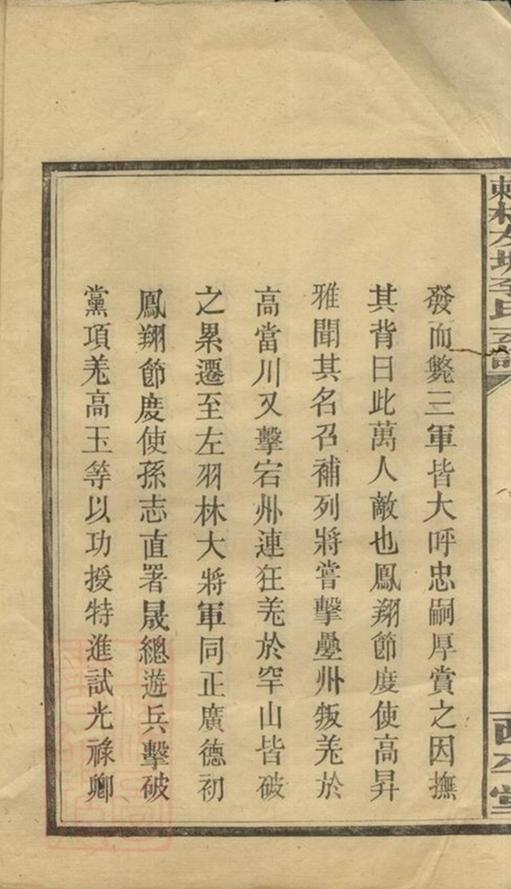 發而斃三軍皆大呼忠嗣厚賞之因撫
其背曰此萬人敵也鳳翔節度使高昇
雅聞其名召補列將嘗擊疊州叛羌於
高當川又擊宕州連狂羌於罕山皆破
之累遷至左羽林大將軍同正廣德初
鳳翔節度使孫志直署晟總遊兵擊破
黨項羌高玉等以功授特進試光祿卿